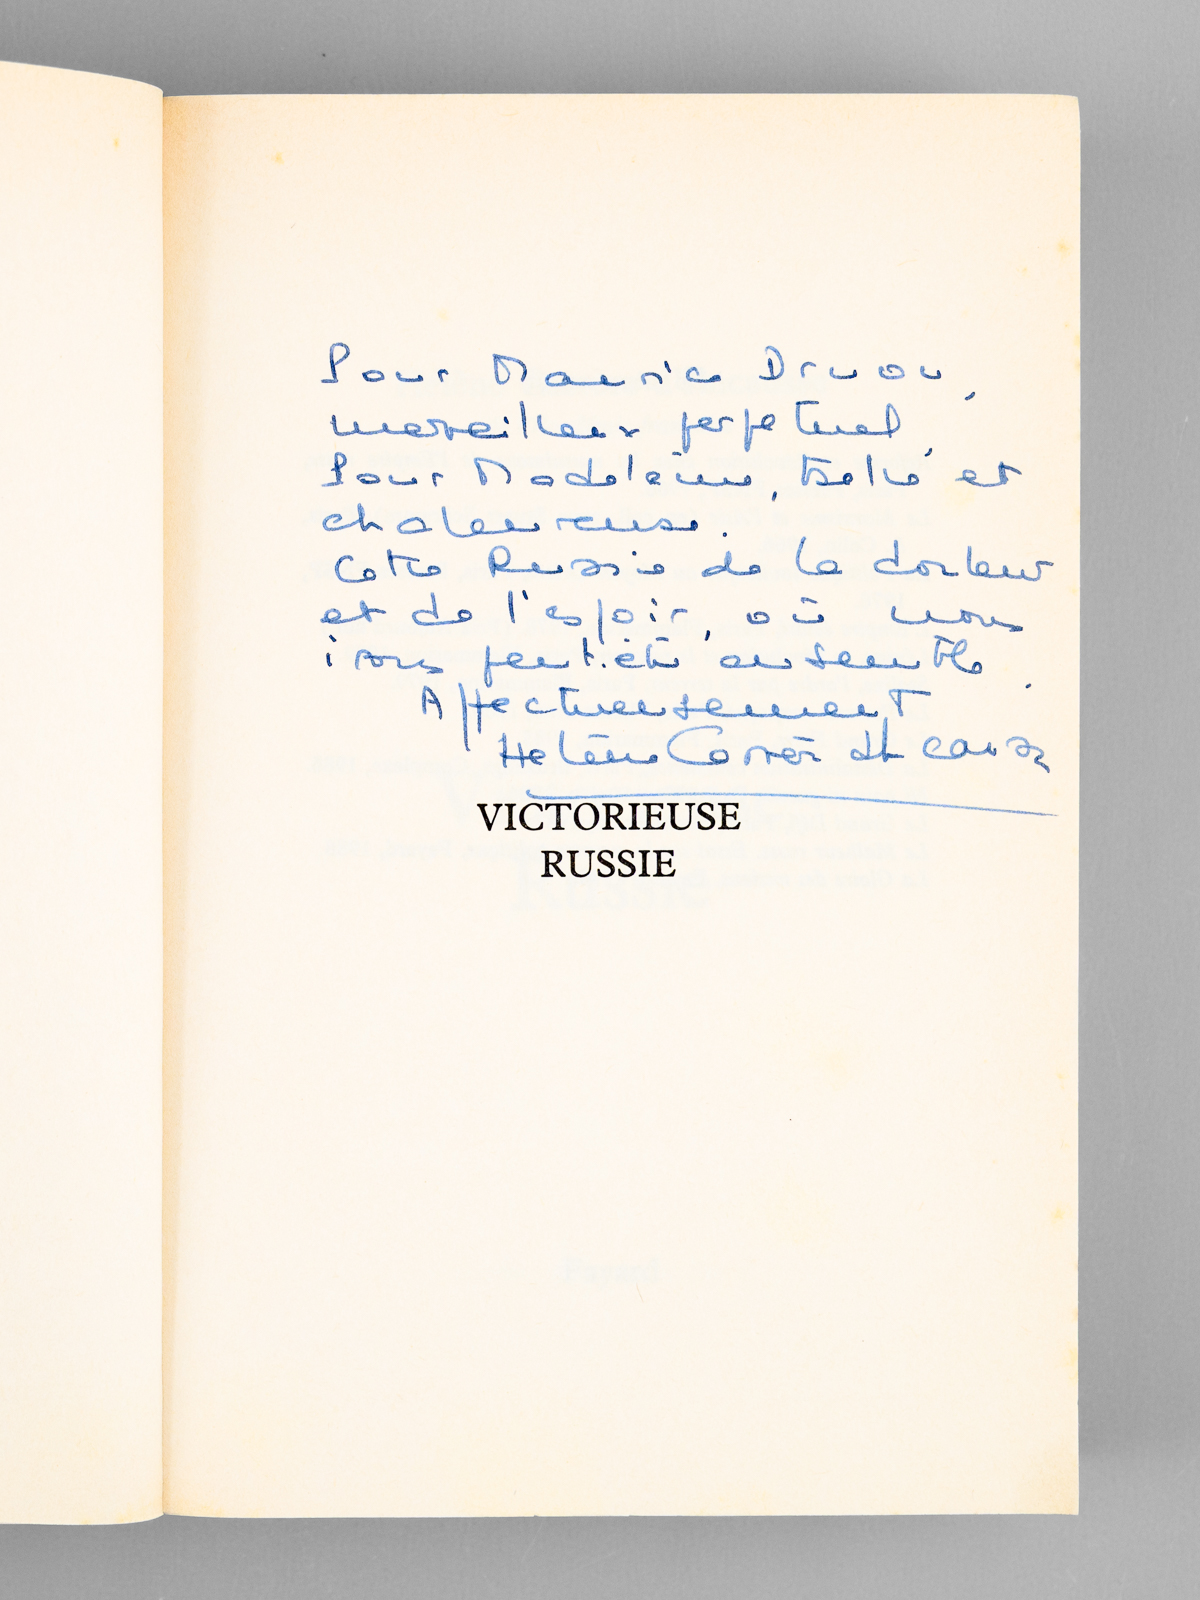 Pour Maurice Druon,
merveilleux perpétuel,
Pour Madeleine, belle et
chaleureuse.
Cette Russie de la douleur
et de l'espoir, où nous
irons peut-être ensemble.
Affectueusement
Hélène Carrère d'Encausse
VICTORIEUSE
RUSSIE